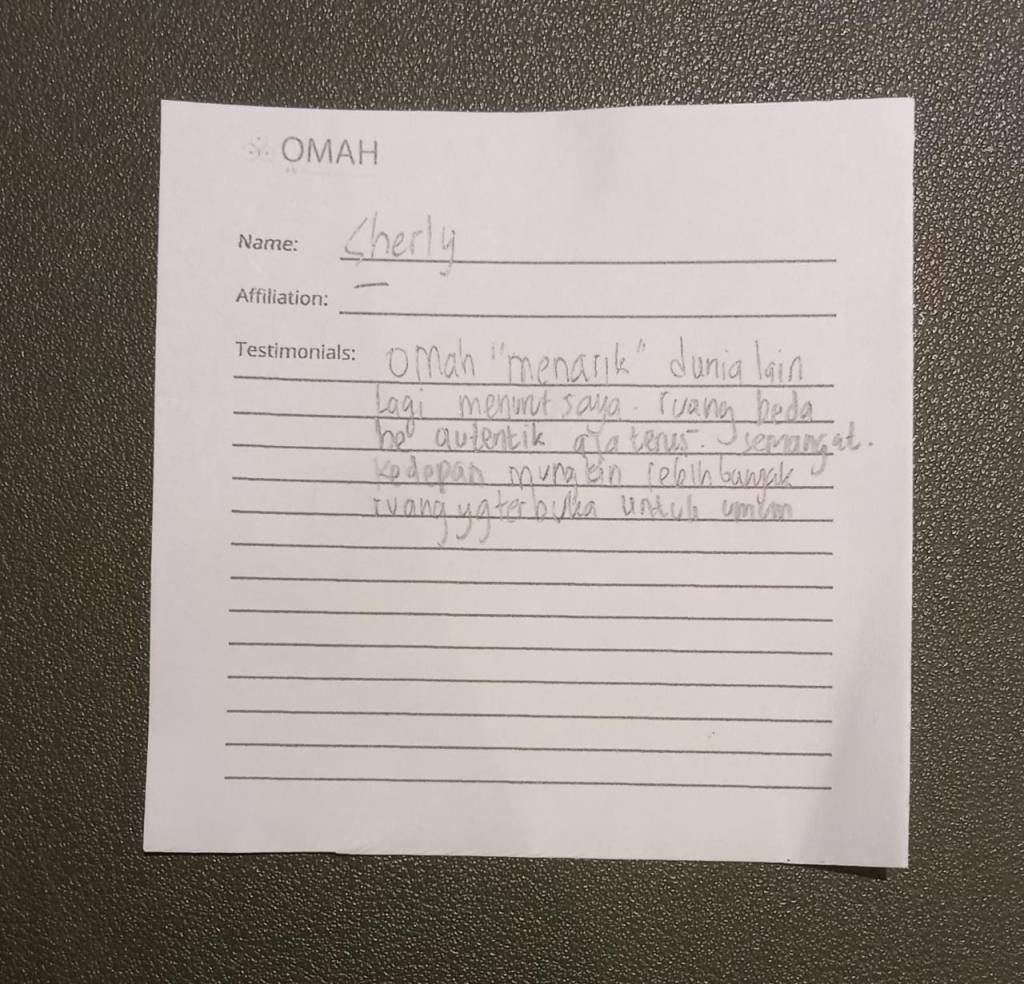 OMAH
Name: Sherly
Affiliation: —
Testimonials: Omah "menarik" dunia lain
Lagi menurut saya. ruang beda
autentik terus. semangat.
kedepan mungkin lebih banyak
ruang yg terbuka untuk umum